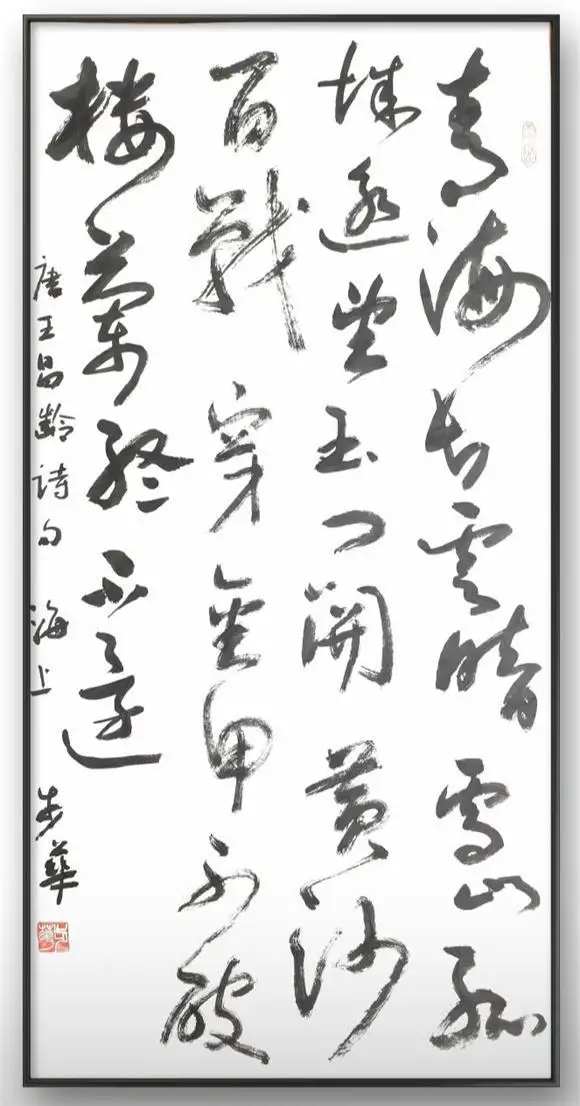 青海长雲暗雪山孤
城遥望玉门関黄沙
百戰穿金甲不破
楼蘭终不還
唐王昌齡詩句 海上 步華